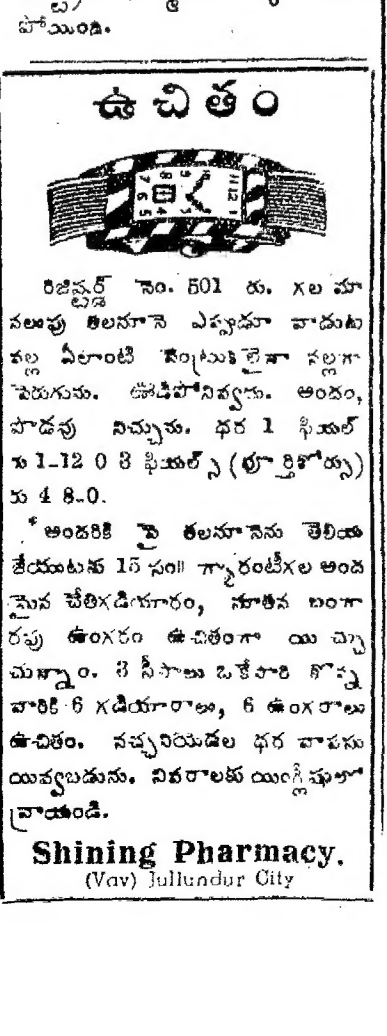 పోయింది.
ఉచితం
రిజిస్టర్డ్ నెం. 501 రు. గల మా
నలుపు తలనూనె ఎప్పుడూ వాడుట
వల్ల ఏలాంటి వెంట్రుకలైనా నల్లగా
పెరుగును. ఊడిపోనివ్వదు. అందం,
పొడవు నిచ్చును. ధర 1 ఫియల్
కు 1-12 0 3 ఫియల్స్ (పూర్తికోర్సు)
కు 4 8-0.
అందరికి పై తలనూనెను తెలియ
జేయుటకు 15 సం॥ గ్యారంటీగల అంద
మైన చేతిగడియారం, నూతన బంగా
రపు ఉంగరం ఉచితంగా యిచ్చు
చున్నాం. 3 సీసాలు ఒకేసారి కొన్న
వారికి 6 గడియారాలు, 6 ఉంగరాలు
ఉచితం. నచ్చనియెడల ధర వాపసు
యివ్వబడును. వివరాలకు యింగ్లీషులో
వ్రాయండి.
Shining Pharmacy.
(Vav) Jullundur City